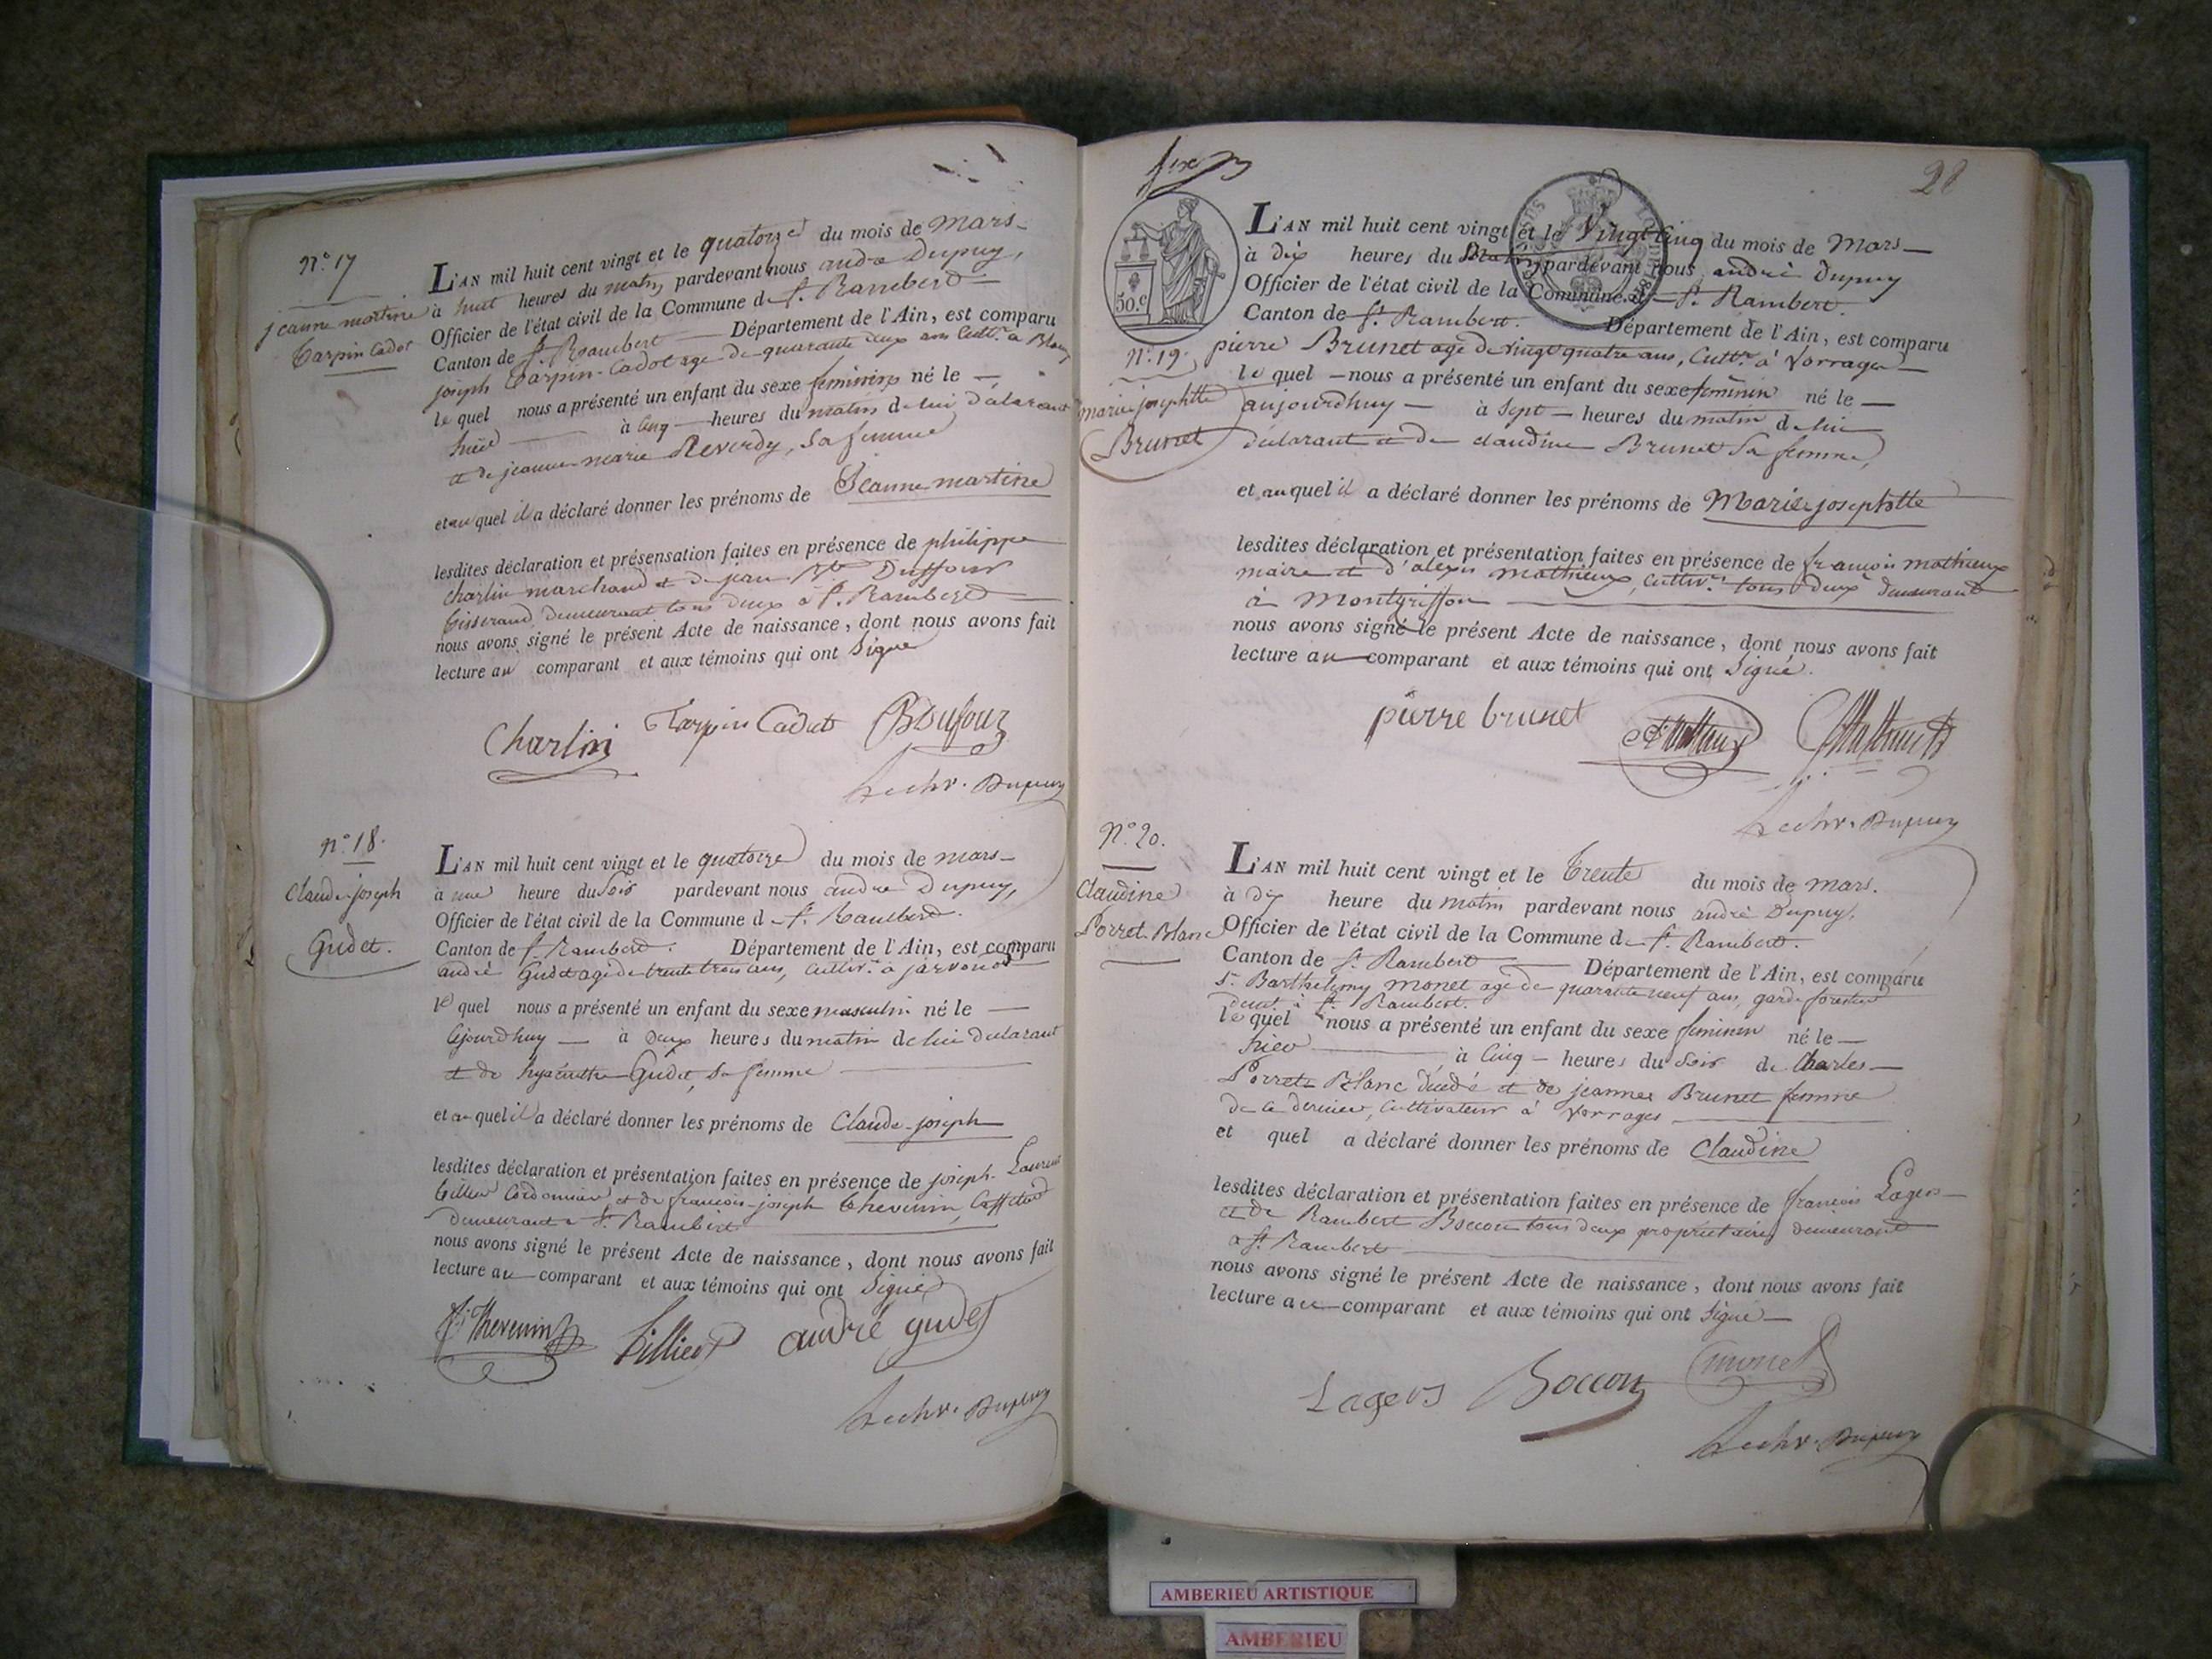 N.° 17
jeanne martine
Tarpin Cadot
L'AN mil huit cent vingt et le quatorze du mois de Mars
à huit heures du matin pardevant nous andré Dupuy,
Officier de l'état civil de la Commune d St. Rambert
Canton de St. Rambert Département de l'Ain, est comparu
joseph Tarpin-Cadot age de quarante deux ans Cultr. a
le quel nous a présenté un enfant du sexe feminin né le
hier à Cinq heures du matin de lui déclarant
et de jeanne-marie Reverdy, sa femme
et au quel il a déclaré donner les prénoms de Jeanne martine
lesdites déclaration et présensation faites en présence de philippe
Charlin marchand et de jean Bte Duffour
tisserand demeurant tous deux à St. Rambert
nous avons signé le présent Acte de naissance, dont nous avons fait
lecture au comparant et aux témoins qui ont Signé
Charlin Tarpin Cadot BDufour
Dupuy
N.° 18.
Claude-joseph
Gudet.
L'AN mil huit cent vingt et le quatorze du mois de mars
à une heure du Soir pardevant nous andré Dupuy,
Officier de l'état civil de la Commune d St. Rambert.
Canton de St. Rambert. Département de l'Ain, est comparu
andré Gudet agé de trente trois ans, cultivr. à javornod
le quel nous a présenté un enfant du sexe masculin né le
cejourdhuy à deux heures du matin de lui déclarant
et de hyacinthe Gudet, sa femme
et au quel il a déclaré donner les prénoms de Claude-joseph
lesdites déclaration et présentation faites en présence de joseph Laurent
tillier Cordonnier et de françois-joseph thevenin, Caffetier
demeurant a St. Rambert
nous avons signé le présent Acte de naissance, dont nous avons fait
lecture au comparant et aux témoins qui ont Signé
Thevenin tillier andré gudet
Dupuy
28
50.c
N.° 19.
marie josephtte
Brunet
L'AN mil huit cent vingt et le Vingt Cinq du mois de Mars
à dix heures du Matin pardevant nous andré Dupuy
Officier de l'état civil de la Commune d St. Rambert.
Canton de St. Rambert. Département de l'Ain, est comparu
pierre Brunet agé de vingt quatre ans, Cultr. à Vorrages
le quel nous a présenté un enfant du sexe féminin né le
aujourdhuy à Sept heures du matin de lui
déclarant et de claudine Brunet Sa femme,
et au quel il a déclaré donner les prénoms de Marie josephtte
lesdites déclaration et présentation faites en présence de françois mathieux
maire et d'alexis mathieux, cultivr. tous deux demeurant
à Montgriffon
nous avons signé le présent Acte de naissance, dont nous avons fait
lecture au comparant et aux témoins qui ont Signé.
pierre brunet
Dupuy
N.° 20.
Claudine
Porret-Blanc
L'AN mil huit cent vingt et le trente du mois de mars.
à dix heure du matin pardevant nous andré Dupuy.
Officier de l'état civil de la Commune d St. Rambert.
Canton de St. Rambert Département de l'Ain, est comparu
Sr. Barthelemy Monet agé de quarante neuf ans, garde forestier
demt à St. Rambert.
le quel nous a présenté un enfant du sexe feminin né le
hier à Cinq heures du Soir de Charles
Porret Blanc décédé et de jeanne Brunet femme
de ce dernier, Cultivateur à Vorrages
et quel a déclaré donner les prénoms de Claudine
lesdites déclaration et présentation faites en présence de françois Lagers
et de Rambert Boccon tous deux propriétaires demeurant
a St. Rambert
nous avons signé le présent Acte de naissance, dont nous avons fait
lecture au comparant et aux témoins qui ont Signé
Lagers Boccon monet
Dupuy
AMBERIEU ARTISTIQUE
AMBERIEU